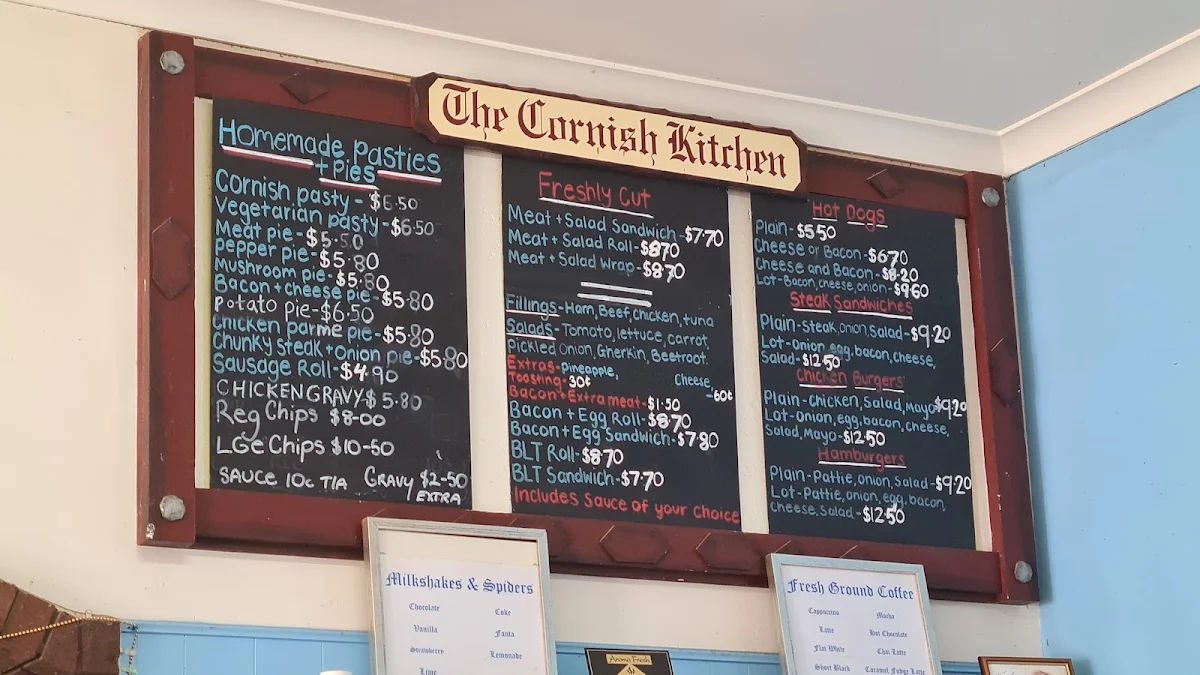 The Cornish Kitchen
Homemade Pasties
+ Pies
Cornish pasty - $6.50
Vegetarian pasty - $6.50
Meat pie - $5.50
pepper pie - $5.80
Mushroom pie - $5.80
Bacon + cheese pie - $5.80
Potato pie - $6.50
Chicken parme pie - $5.80
Chunky steak + onion pie - $5.80
Sausage Roll - $4.90
CHICKEN GRAVY $5.80
Reg Chips $8-00
LGe Chips $10-50
SAUCE 10c T/A GRAVY $2-50
EXTRA
Freshly Cut
Meat + Salad Sandwich - $7.70
Meat + Salad Roll - $8.70
Meat + Salad Wrap - $8.70
Fillings - Ham, Beef, chicken, tuna
Salads - Tomato, lettuce, carrot,
Pickled Onion, Gherkin, Beetroot.
Extras - Pineapple, Cheese,
Toasting - 30¢ - 60¢
Bacon + Extra meat - $1.50
Bacon + Egg Roll - $8.70
Bacon + Egg Sandwich - $7.80
BLT Roll - $8.70
BLT Sandwich - $7.70
Includes Sauce of your Choice
Hot Dogs
Plain - $5.50
Cheese or Bacon - $6.70
Cheese and Bacon - $8.20
Lot - Bacon, cheese, onion - $9.60
Steak Sandwiches
Plain - Steak, onion, Salad - $9.20
Lot - Onion, egg, bacon, cheese,
Salad - $12.50
Chicken Burgers
Plain - Chicken, Salad, Mayo $9.20
Lot - Onion, egg, bacon, cheese,
Salad, Mayo - $12.50
Hamburgers
Plain - Pattie, onion, Salad - $9.20
Lot - Pattie, onion, egg, bacon,
Cheese, Salad - $12.50
Milkshakes & Spiders
Chocolate Coke
Vanilla Fanta
Strawberry Lemonade
Lime
Fresh Ground Coffee
Cappuccino Mocha
Latte Hot Chocolate
Flat White Chai Latte
Short Black Caramel Fudge Latte
Aroma Fresh